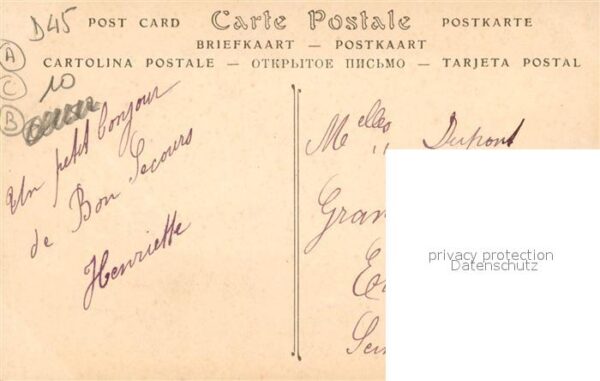 D45
POST CARD Carte Postale POSTKARTE
BRIEFKAART — POSTKAART
CARTOLINA POSTALE — ОТКРЫТОЕ ПИСЬМО — TARJETA POSTAL
A
C
B
10
Un petit bonjour
de Bon Secours
Henriette
Melles Dupont
Gran
privacy protection
Datenschutz